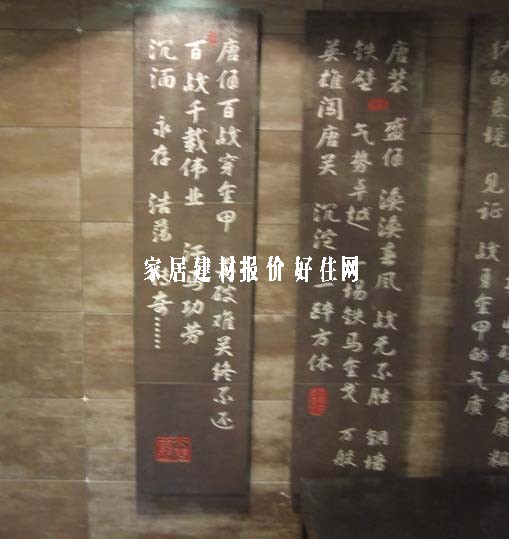 的意境 见证 战 金甲的气质
唐装 盛佰 溱溱春风 战无不胜 铜墙
铁壁 气势卓越 一场铁马金戈 万般
英雄闯唐关 沉淀一醉方休
唐佰百战穿金甲 破难关终不还
百战千载伟业 汗马功劳
沉湎 永存 浩荡 传奇……
家居建材报价 好住网